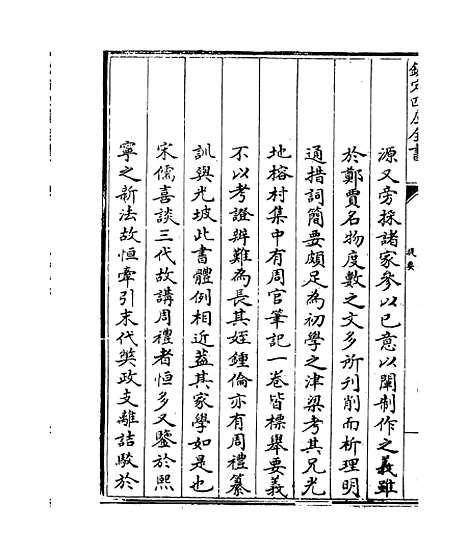 欽定四庫全書
提要
源又旁採諸家參以已意以闡制作之義雖
於鄭賈名物度數之文多所刊削而析理明
通措詞簡要頗足為初學之津梁考其兄光
地榕村集中有周官筆記一卷皆標舉要義
不以考證辨難為長其姪鍾倫亦有周禮纂
訓與光坡此書體例相近蓋其家學如是也
宋儒喜談三代故講周禮者恒多又鑒於熙
寧之新法故恒牽引末代弊政支離詰駁於